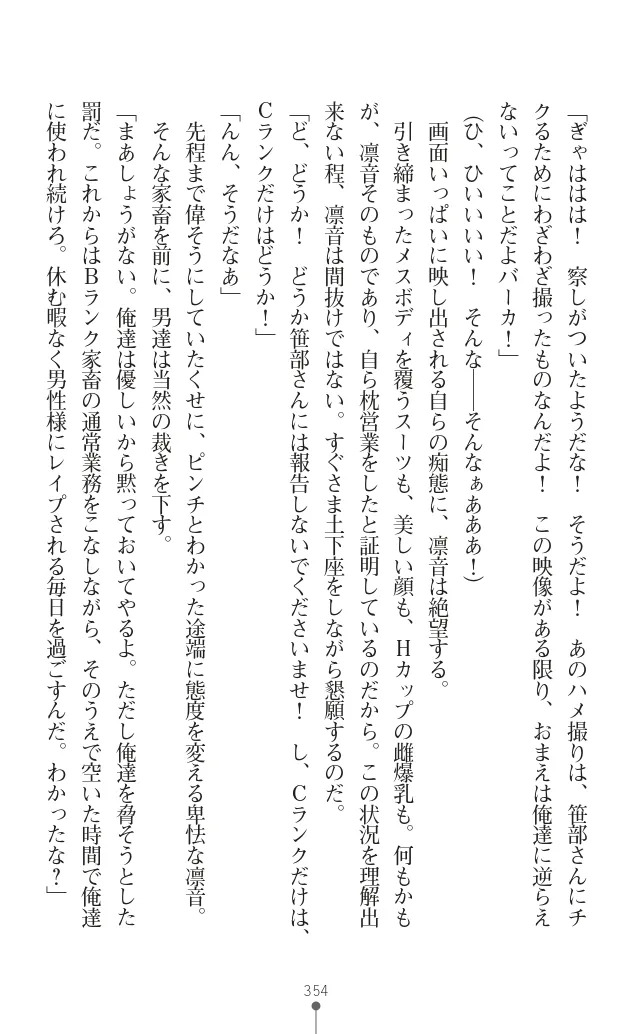 「ぎゃははは！　察しがついたようだな！　そうだよ！　あのハメ撮りは、笹部さんにチ
クるためにわざわざ撮ったものなんだよ！　この映像がある限り、おまえは俺達に逆らえ
ないってことだよバーカ！」
（ひ、ひいいいい！　そんな――そんなぁあああ！）
　画面いっぱいに映し出される自らの痴態に、凛音は絶望する。
　引き締まったメスボディを覆うスーツも、美しい顔も、Ｈカップの雌爆乳も。何もかも
が、凛音そのものであり、自ら枕営業をしたと証明しているのだから。この状況を理解出
来ない程、凛音は間抜けではない。すぐさま土下座をしながら懇願するのだ。
「ど、どうか！　どうか笹部さんには報告しないでくださいませ！　し、Ｃランクだけは、
Ｃランクだけはどうか！」
「んん、そうだなあ」
　先程まで偉そうにしていたくせに、ピンチとわかった途端に態度を変える卑怯な凛音。
　そんな家畜を前に、男達は当然の裁きを下す。
「まあしょうがない。俺達は優しいから黙っておいてやるよ。ただし俺達を脅そうとした
罰だ。これからはＢランク家畜の通常業務をこなしながら、そのうえで空いた時間で俺達
に使われ続けろ。休む暇なく男性様にレイプされる毎日を過ごすんだ。わかったな？」
354